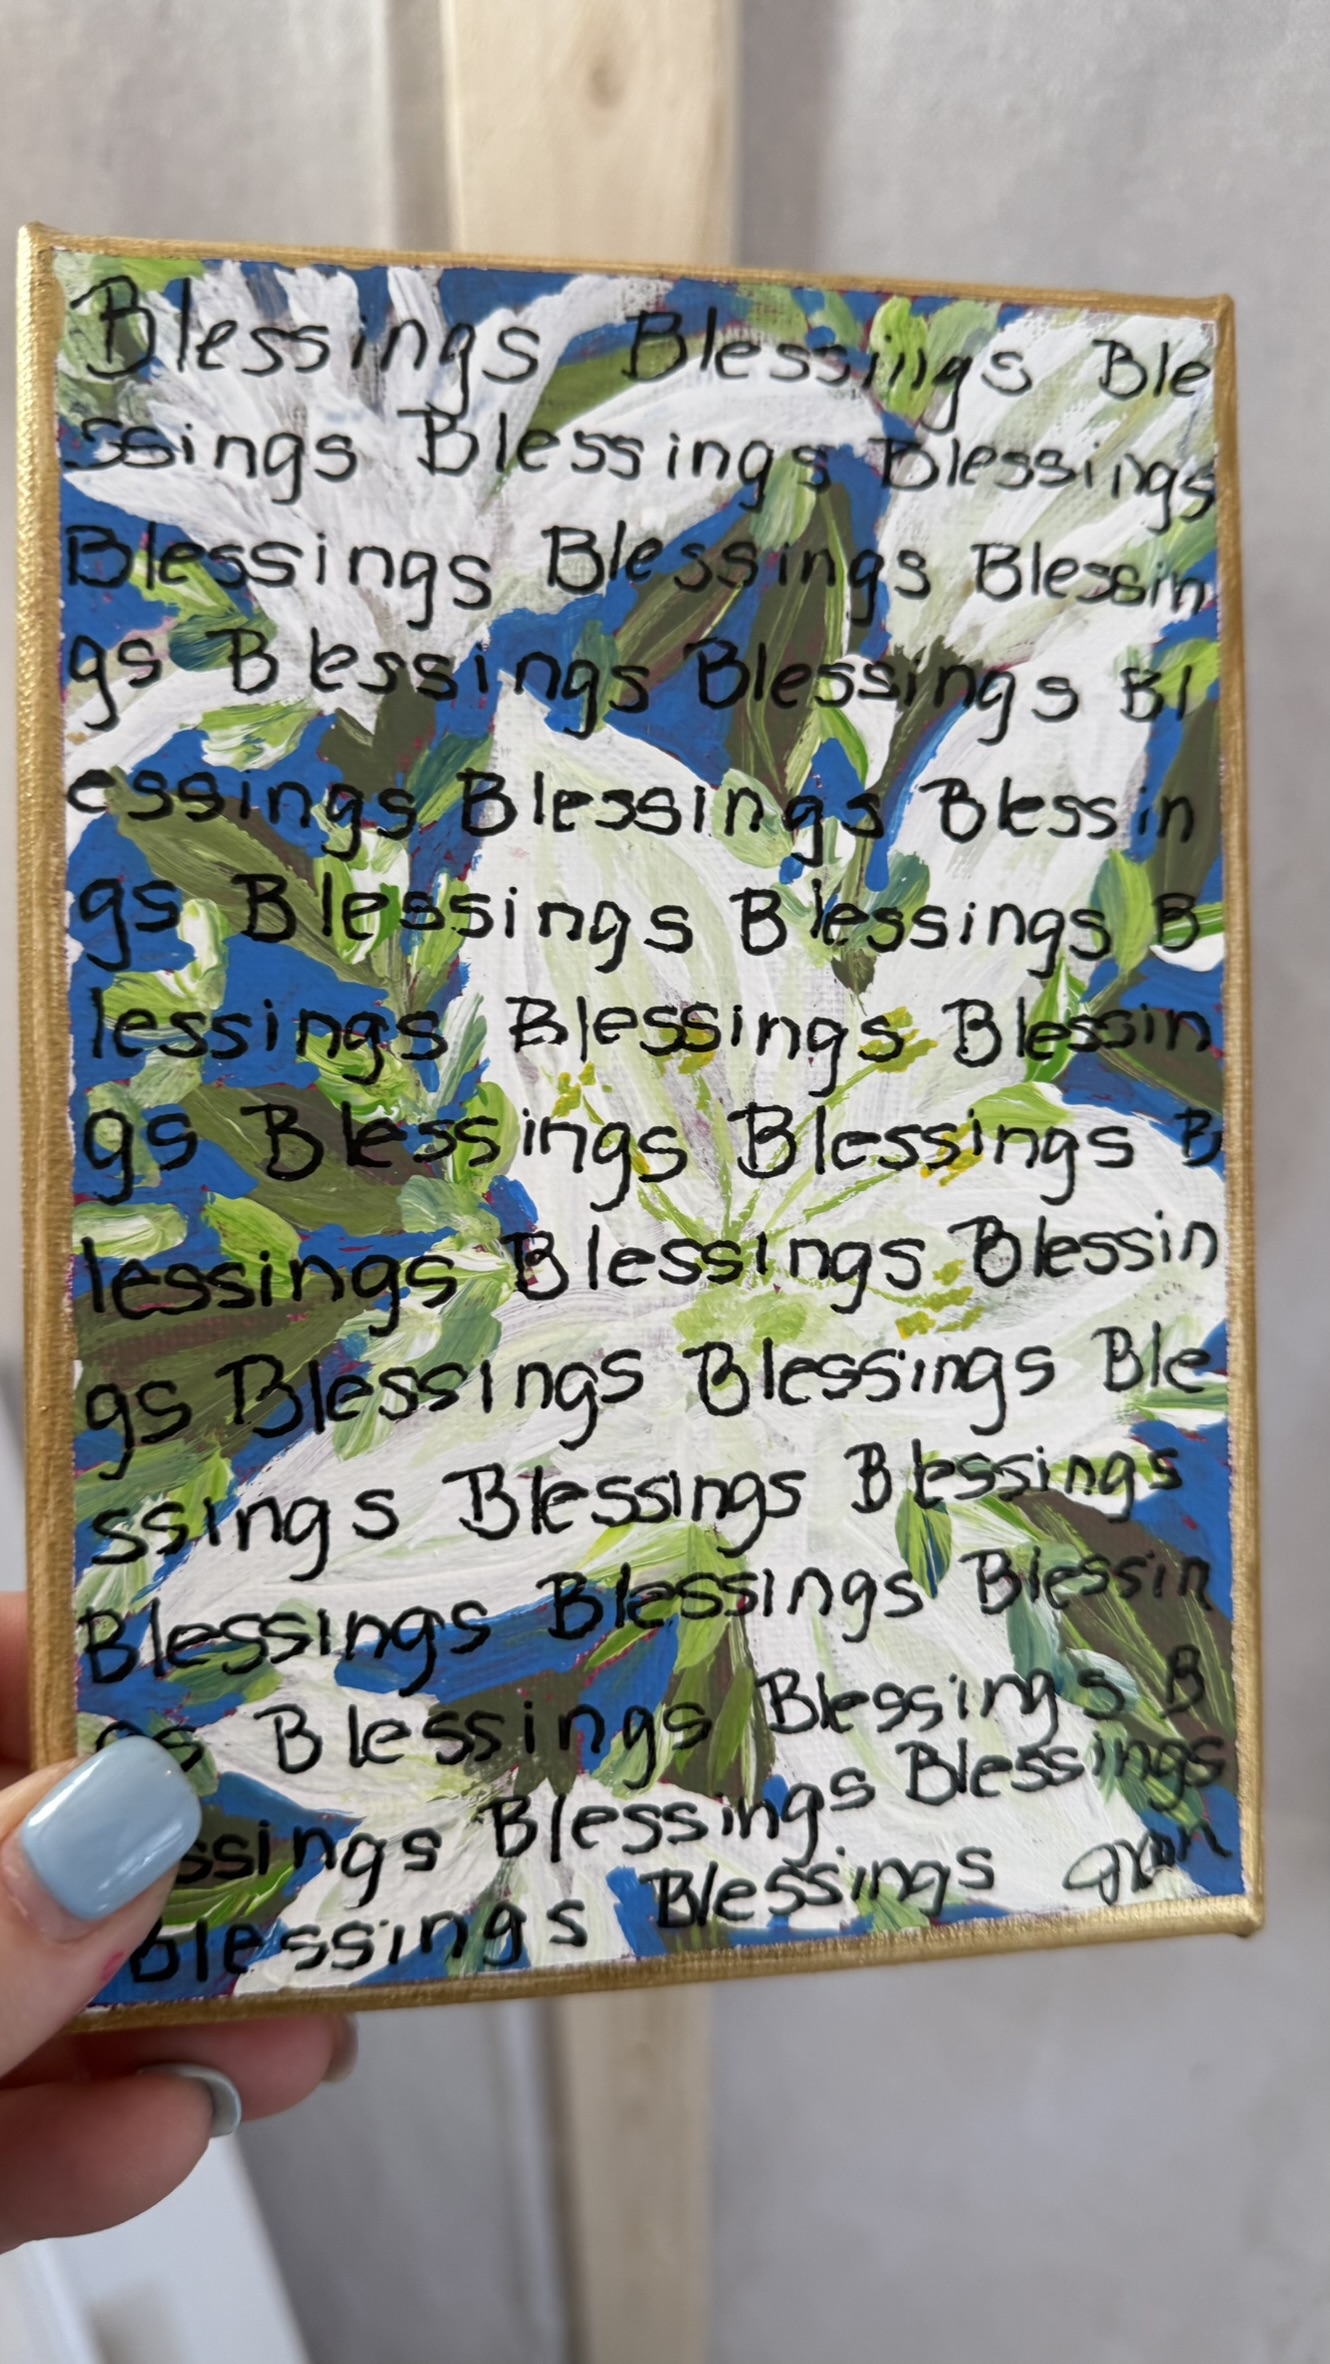 Blessings Blessings Ble
ssings Blessings Blessings
Blessings Blessings Blessin
gs Blessings Blessings Bl
essings Blessings Blessin
gs Blessings Blessings B
lessings Blessings Blessin
gs Blessings Blessings B
lessings Blessings Blessin
gs Blessings Blessings Ble
ssings Blessings Blessings
Blessings Blessings Blessin
gs Blessings Blessings B
ssings Blessings Blessings
Blessings Blessings